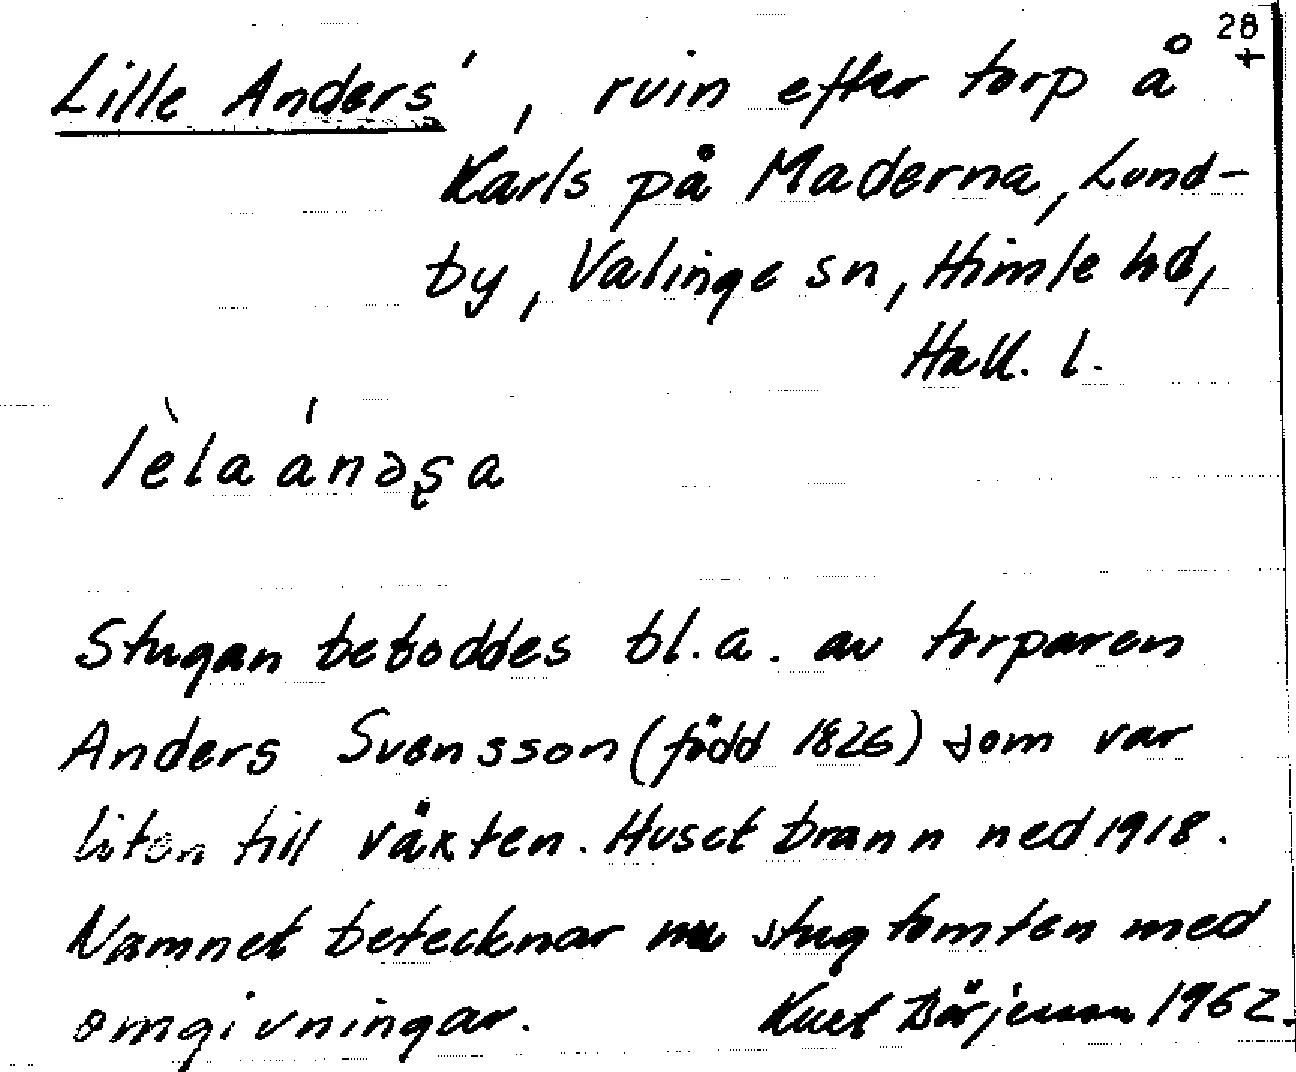 28
+
Lille Anders', ruin efter torp å
Karls på Maderna, Lund-
by, Valinge sn, Himle hd,
Hall. l.
lèla ánəʂa
Stugan beboddes bl.a. av torparen
Anders Svensson (född 1826) som var
liten till växten. Huset brann ned 1918.
Namnet betecknar nu stugtomten med
omgivningar. Kurt Börjesson 1962.